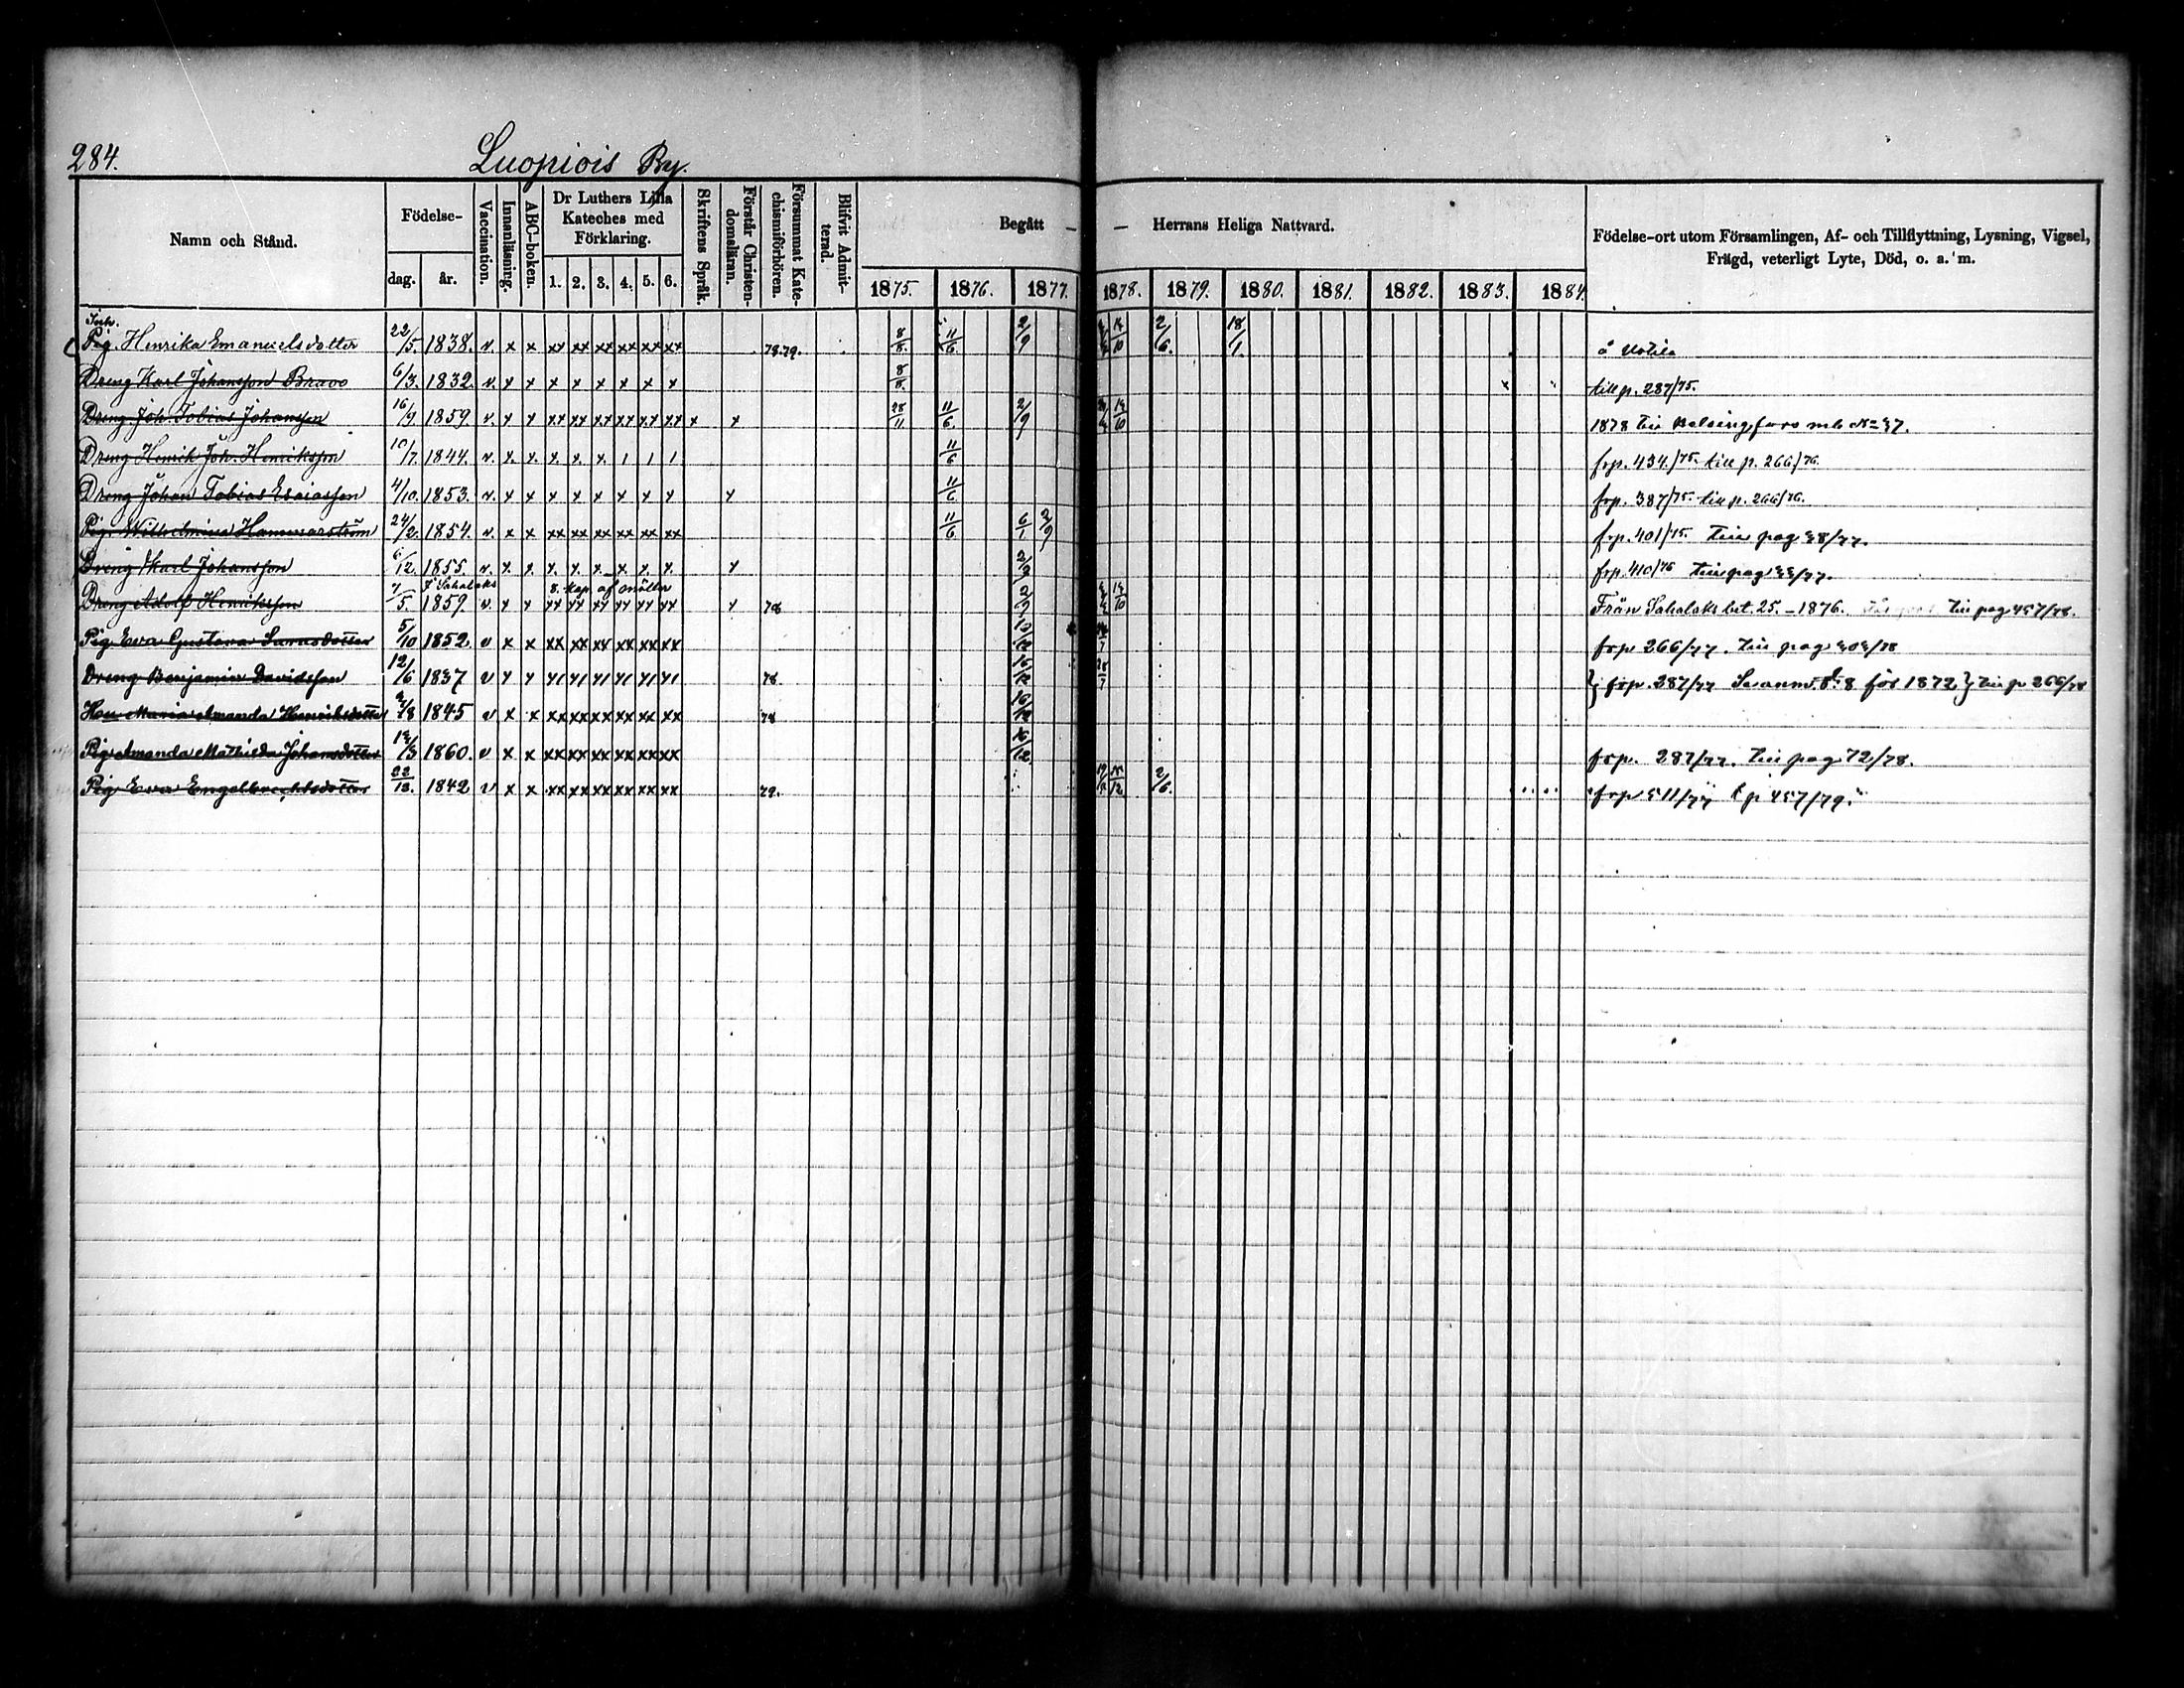 284. Luopiois By.
Namn och Stånd. Födelse- dag. år. Vaccination. Innanläsning. ABC-boken. Dr Luthers Lilla Kateches med Förklaring. 1. 2. 3. 4. 5. 6. Skriftens Språk. Förstår Christendomsläran. Försummat Katechismiförhören. Blifvit Admitterad. Begått — — Herrans Heliga Nattvard. 1875. 1876. 1877. 1878. 1879. 1880. 1881. 1882. 1883. 1884. Födelse-ort utom Församlingen, Af- och Tillflyttning, Lysning, Vigsel, Frägd, veterligt Lyte, Död, o. a. m.
Inh.
Pig. Henrika Emanuelsdotter 22/5. 1838. v. x x xx xx xx xx xx xx 78.79. 8/8. 11/6. 2/9 14/10 2/6. 18/1. å
Dreng Karl Johansson Bravo 6/3. 1832. v. x x x x x x x x 8/8. till p. 287/75.
Dreng Joh. Tobias Johansson 16/9. 1859. v. x x xx xx xx xx xx xx x x 28/11 11/6. 2/9 14/10 1878 till Helsingfors mb No 37.
Dreng Henrik Joh. Henriksson 10/7. 1844. v. x. x. x. x. x. 1 1 1 11/6 frp. 434./75. till p. 266/76.
Dreng Johan Tobias Esaiasson 4/10. 1853. v. x x x x x x x x x 11/6. frp. 387/75 till p. 266/76.
Pig. Wilhelmina Hammarström 24/2. 1854. v. x x xx xx xx xx xx xx 11/6 6/1 2/9 frp. 401/75. till pag 38/77.
Dreng Karl Johansson 6/12. 1855. v. x. x. x. x. x. x. x. x. x 2/9 frp. 410/76 till pag 33/77.
F. Sahalaks 8. kap. af
Dreng Adolf Henriksson 7/5. 1859. v. x x xx xx xx xx xx xx x 78 2/9 14/10 Från Sahalaks bet. 25. – 1876. till pag 457/78.
Pig. Eva Gustava 5/10 1852 v x x xx xx xx xx xx xx frp 266/77. till pag 303/78
Dreng Benjamin Davidsson 12/6 1837 v x x 78 16/12 frp. 287/77 Se anm. för 1872 till p 266/78
Hon Maria Amanda Henriksdotter 1845 v x x xx xx xx xx xx xx 78 16/12
Pig. Amanda Mathilda Johansdotter 1860. v x x xx xx xx xx xx xx 16/12 frp. 287/77. till pag 72/78.
Pig Eva Engelbrechtsdotter 22/12. 1842 v x x xx xx xx xx xx xx 79. 2/6. frp 311/77 t. p 457/79.